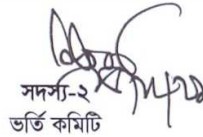 সদস্য-২
ভর্তি কমিটি